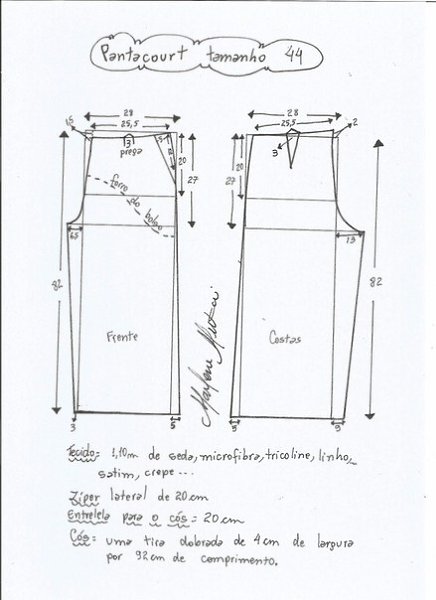 Pantacourt tamanho 44
28
25,5
1,5
3
prega
20
27
82
forro do bolso
65
Frente
3
5
28
25,5
2
3
20
27
13
82
Costas
5
3
Marlene Mukai
Tecido: 1,10m de seda, microfibra, tricoline, linho,
satim, crepe ...
Zíper lateral de 20cm
Entretela para o cós = 20cm
Cós: uma tira dobrada de 4cm de largura
por 92cm de comprimento.